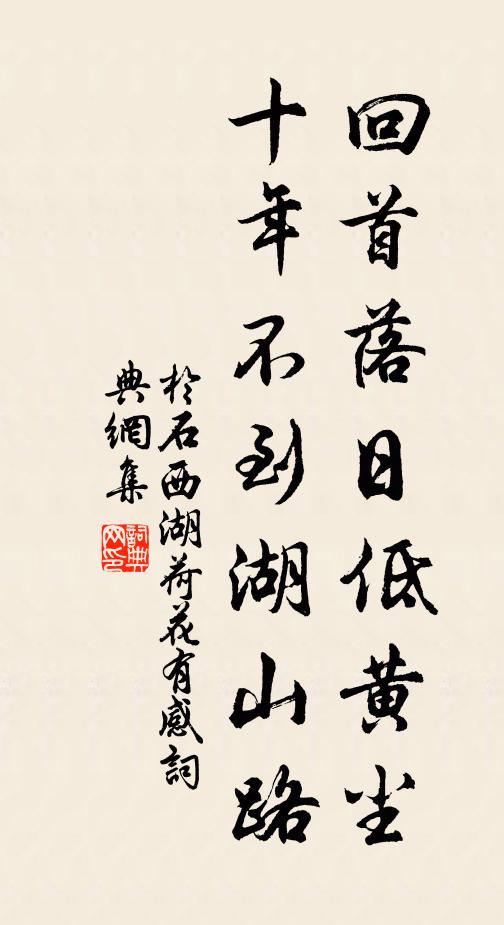 回首落日低黄尘
十年不到湖山路
於石西湖荷花有感詞
典網集
詞典
网印